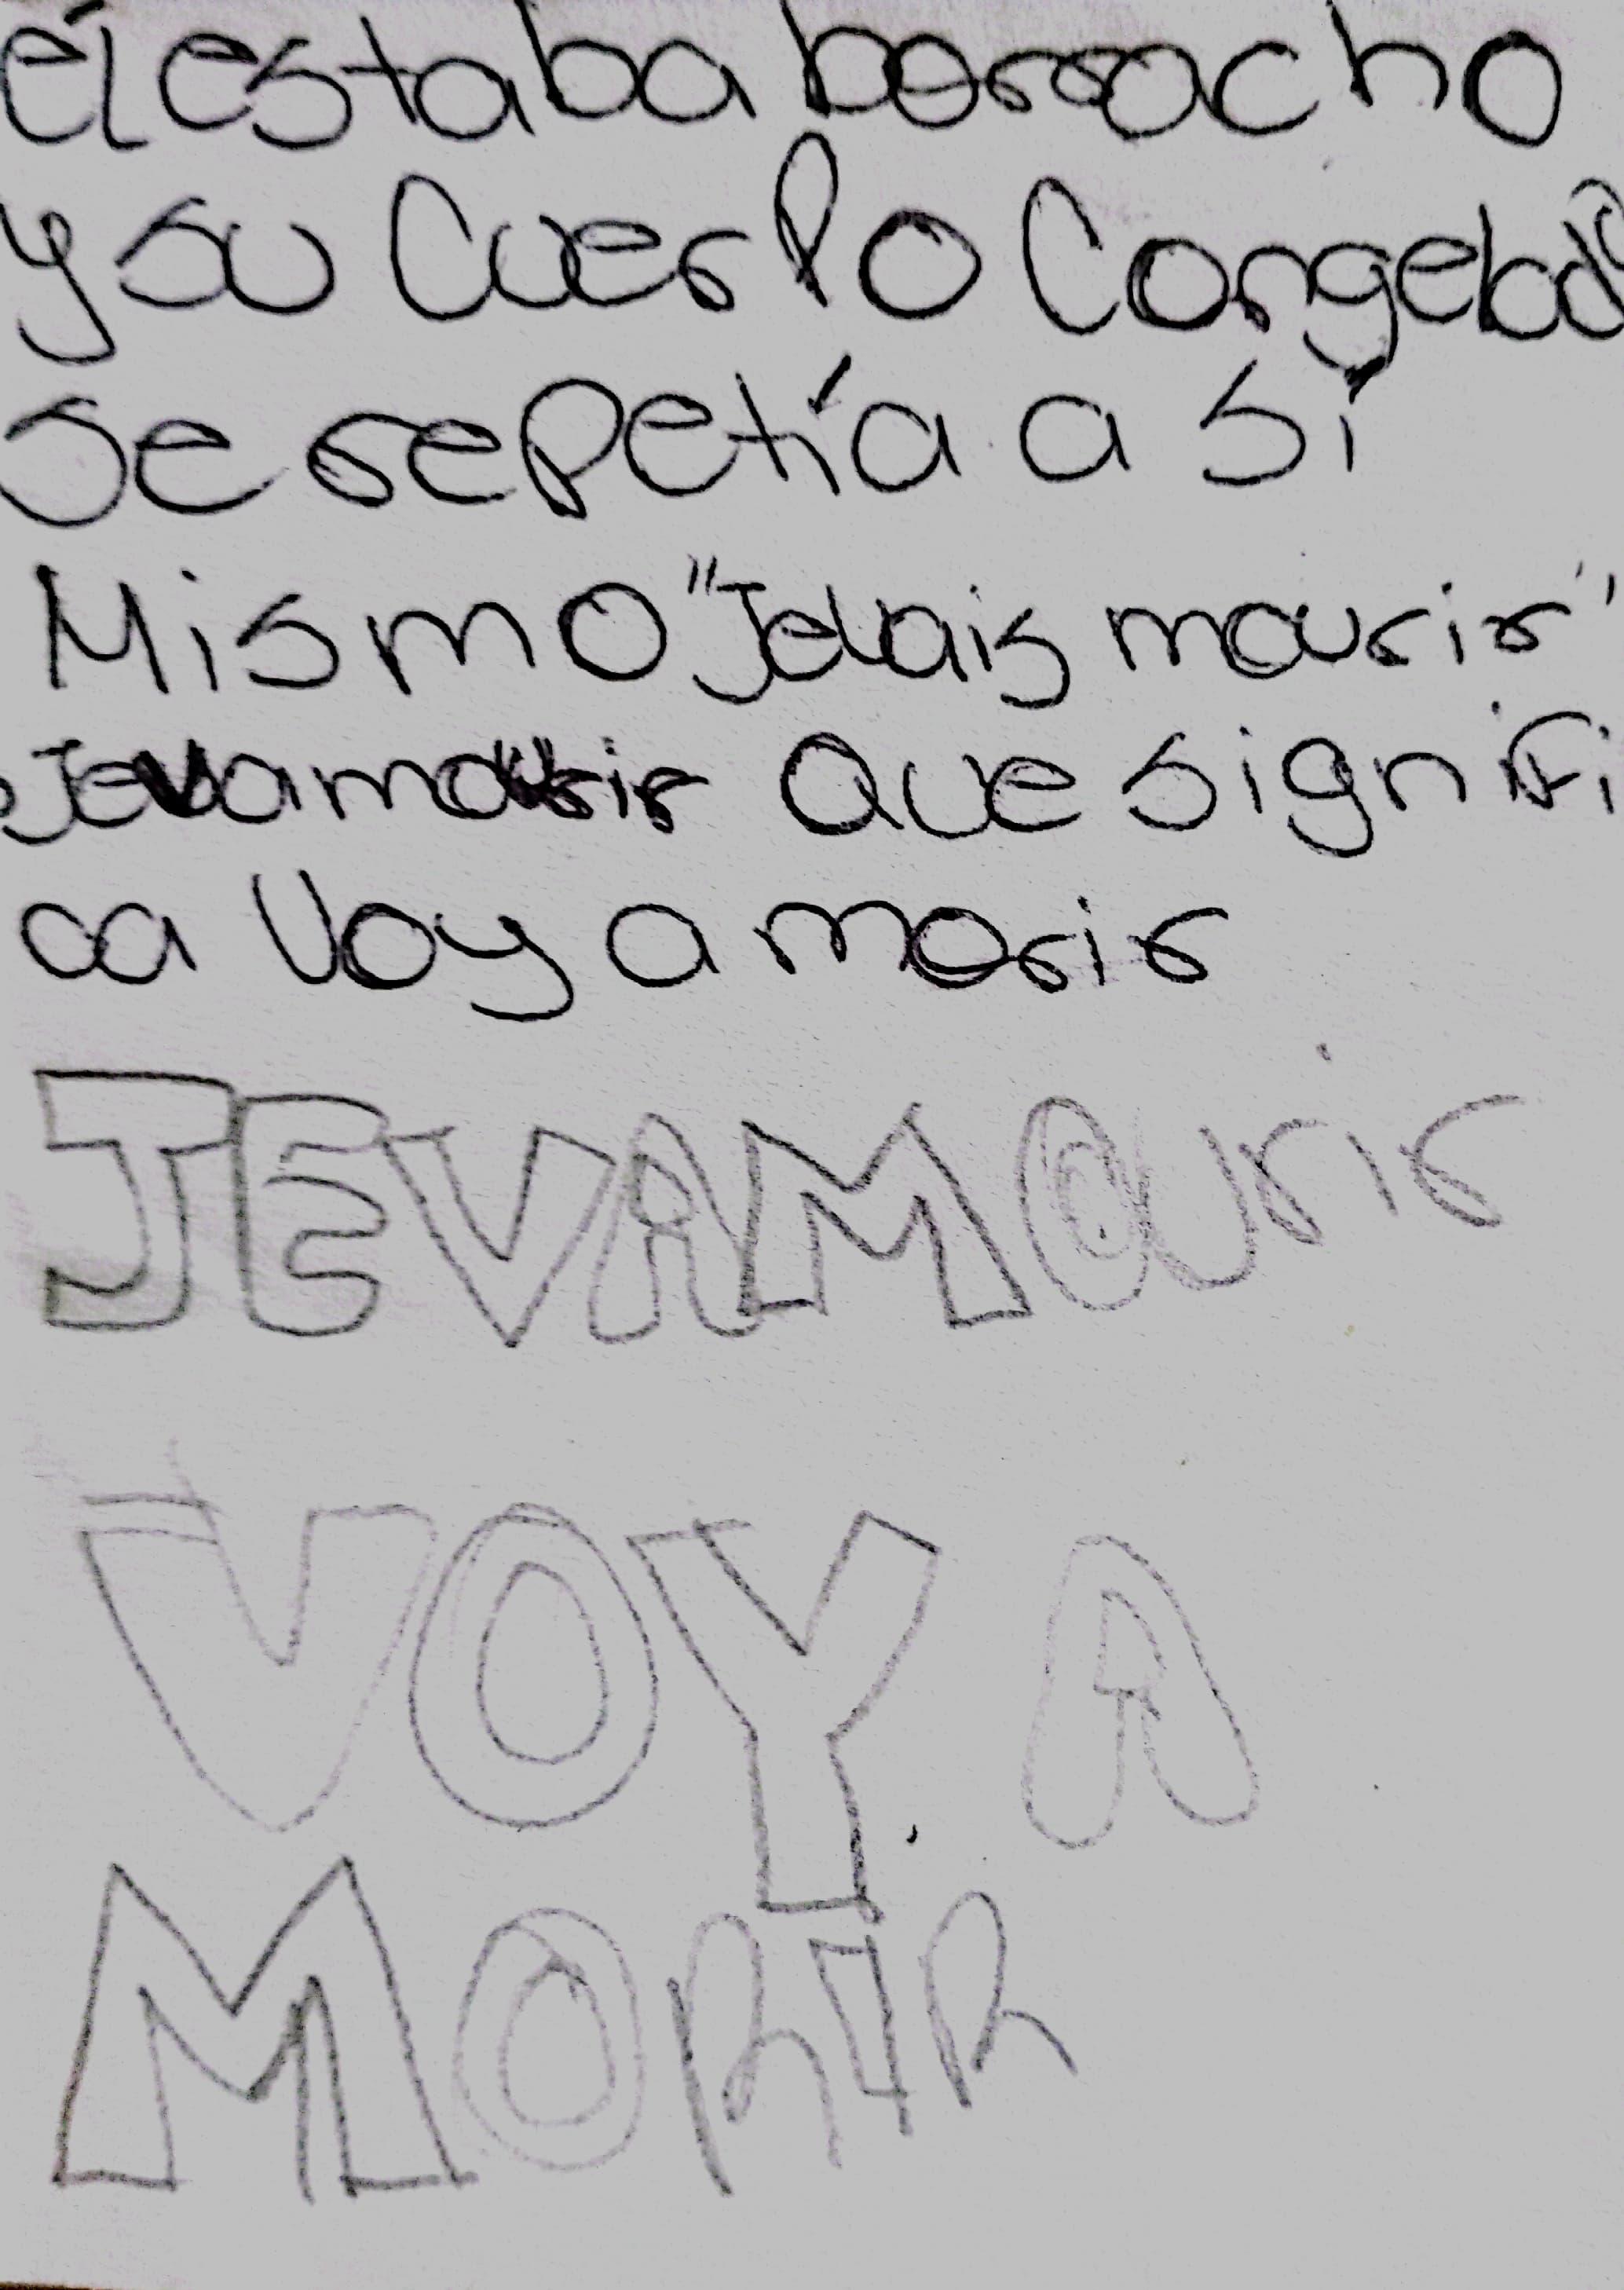 él estaba borracho
y su Cuerpo Congelado
se repetía a sí
Mismo "Je vais mourir"
Jevamourir Que signifi
ca Voy a morir
JEVAMourir
VOY A
MORIR